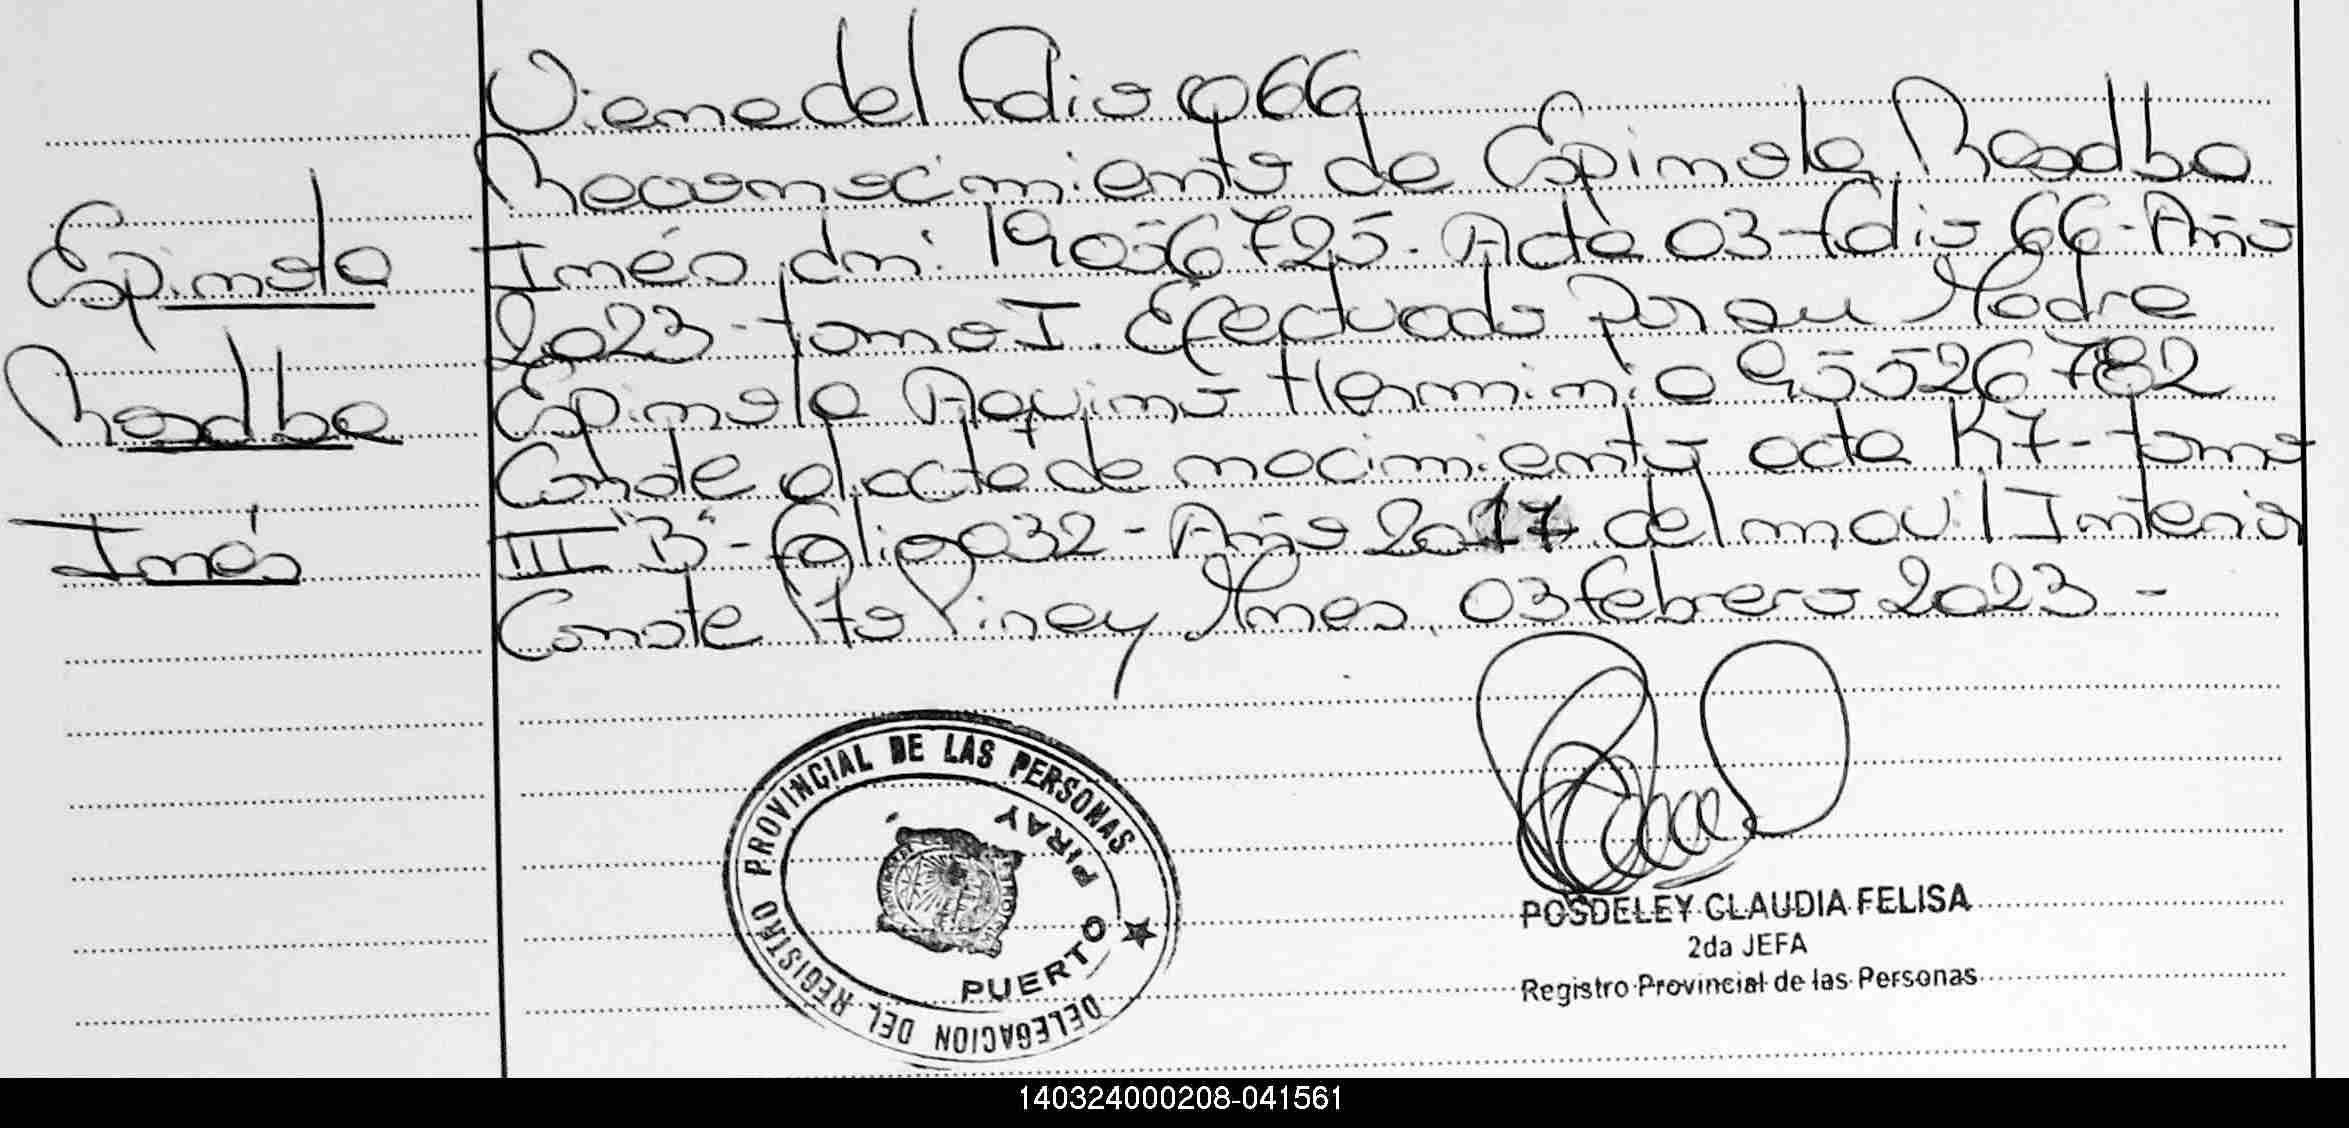 Viene del Folio 066
Reconocimiento de Espinola
Inés dni: 19056725. Acta 03-folio 66-Año
2023-tomo I. Efectuado por su Madre
Espinola Aquino Herminia 95526782
Conste el acta de nacimiento acta K7-tomo
III "B"-folio 032-Año 2017 del movil Interior
Conste Pto Piray Mnes, 03 febrero 2023.-
Espinola
Inés
DELEGACION DEL REGISTRO PROVINCIAL DE LAS PERSONAS
PUERTO PIRAY
POSDELEY CLAUDIA FELISA
2da JEFA
Registro Provincial de las Personas
140324000208-041561